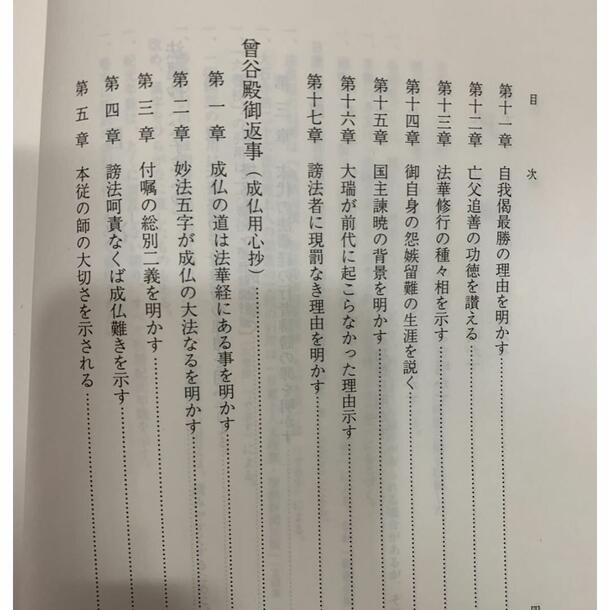 目次
第十一章 自我偈最勝の理由を明かす
第十二章 亡父追善の功徳を讃える
第十三章 法華修行の種々相を示す
第十四章 御自身の怨嫉留難の生涯を説く
第十五章 国主諫暁の背景を明かす
第十六章 大瑞が前代に起こらなかった理由示す
第十七章 謗法者に現罰なき理由を明かす
曾谷殿御返事(成仏用心抄)
第一章 成仏の道は法華経にある事を明かす
第二章 妙法五字が成仏の大法なるを明かす
第三章 付嘱の総別二義を明かす
第四章 謗法呵責なくば成仏難きを示す
第五章 本従の師の大切さを示される